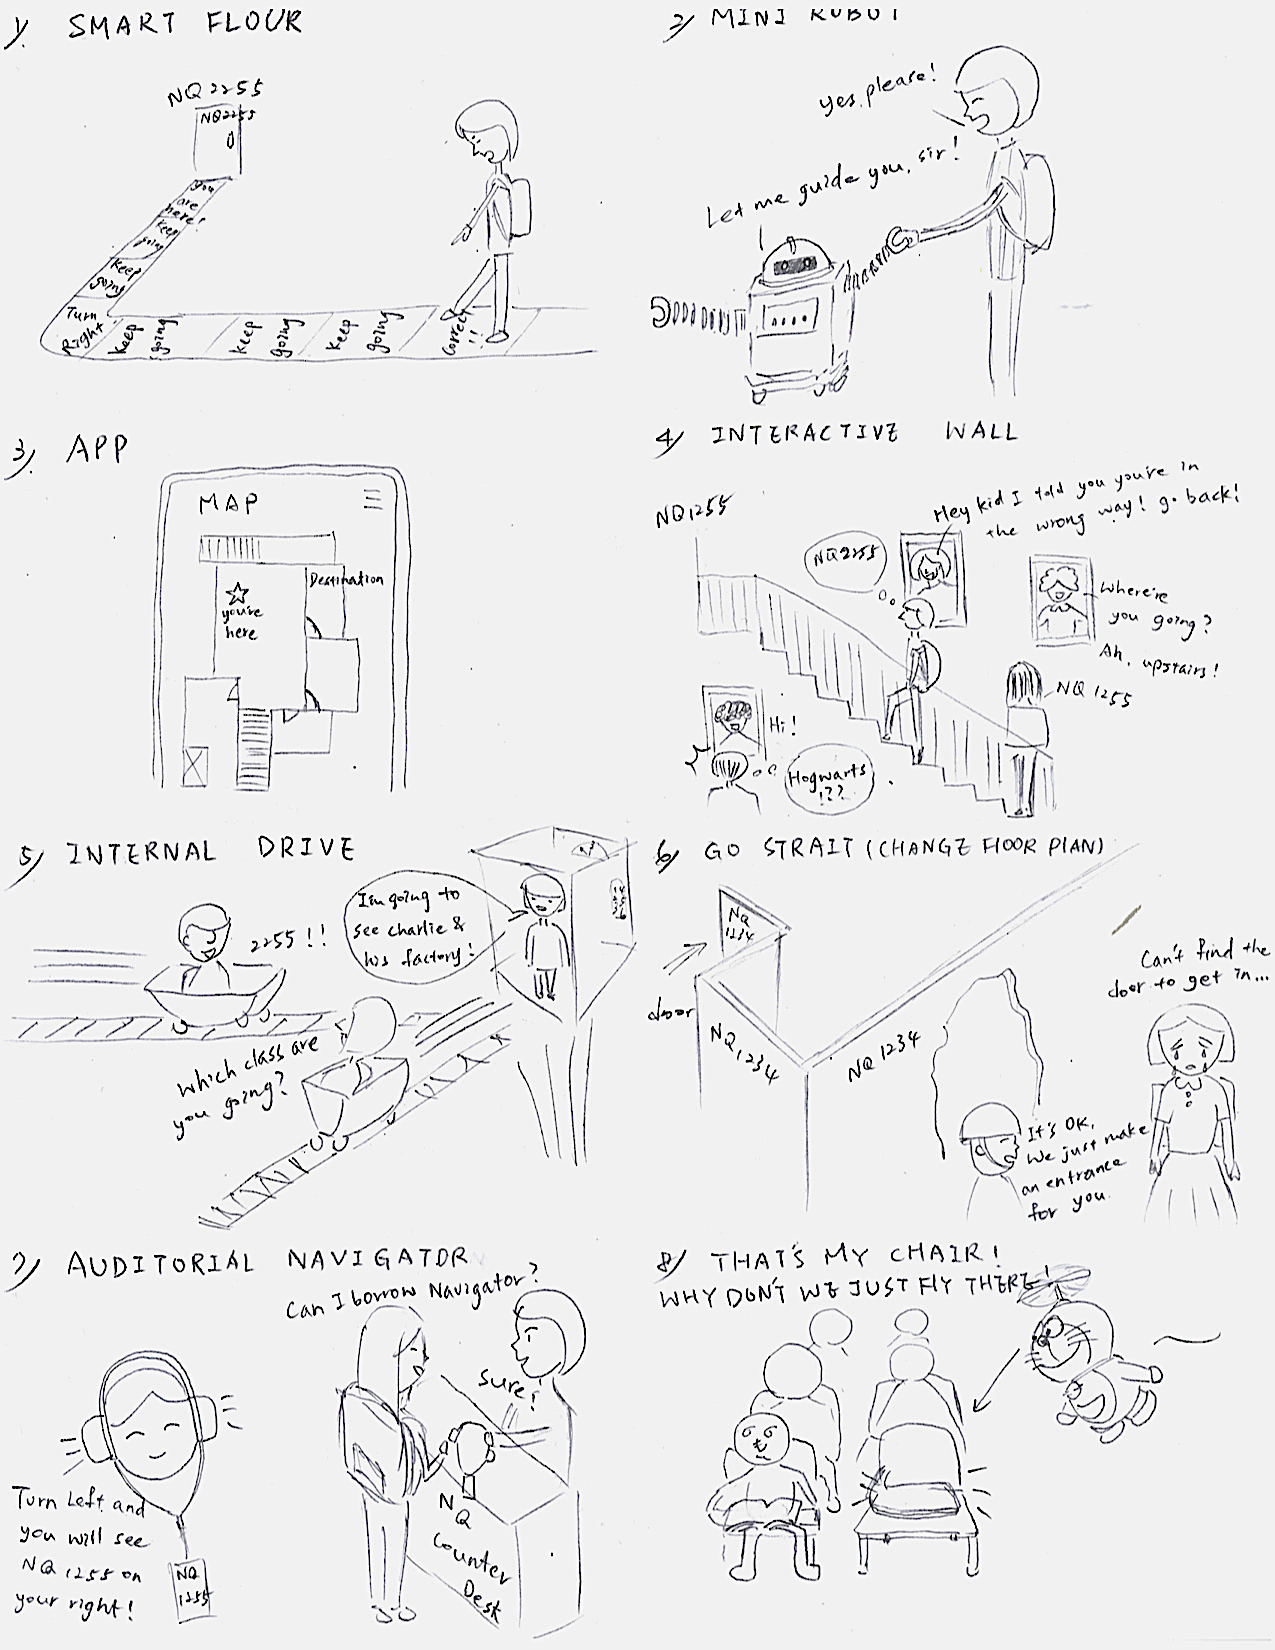 1) SMART FLOUR
NQ 2255
NQ2255
you
are
here!
keep
going
keep
going
Turn
Right
keep
going
keep
going
keep
going
Correct
!!
2) MINI ROBOT
yes, please!
Let me guide you, sir!
3) APP
MAP
Destination
you're
here
4) INTERACTIVE WALL
NQ1255
Hey kid I told you you're in
the wrong way! go back!
NQ2255
Where're
you going?
Ah, upstairs!
NQ 1255
Hi!
Hogwarts
!??
5) INTERNAL DRIVE
2255!!
I'm going to
see charlie &
his factory!
Which class are
you going?
6) GO STRAIT (CHANGE FLOOR PLAN)
NQ
1234
door
NQ 1234
NQ 1234
Can't find the
door to get in...
It's OK,
We just make
an entrance
for you.
7) AUDITORIAL NAVIGATOR
Can I borrow Navigator?
Sure!
Turn Left and
you will see
NQ 1255 on
your right!
NQ
1255
NQ
Counter
Desk
8) THAT'S MY CHAIR!
WHY DON'T WE JUST FLY THERE!